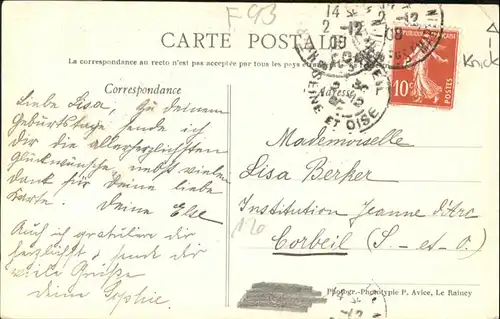 F 93
CARTE POSTALE
La correspondance au recto n'est pas acceptée par tous les pays
Correspondance
Adresse
RÉPUBLIQUE FRANÇAISE
10c
POSTES
Knick
14
2-12
08
CORBEIL
SEINE ET OISE
Liebe Lisa, Zu deinem
Geburtstage sende ich
dir die allerherzlichsten
Glückwünsche nebst vielen
Dank für Deine liebe
Karte. Deine Else
Auch ich gratuliere dir
herzlichst, sende dir
viele Grüße
deine Sophie.
Mademoiselle
Lisa Berker
Institution Jeanne d'Arc
Corbeil (S.-et-O.)
120
Photogr.-Phototypie P. Avice, Le Raincy